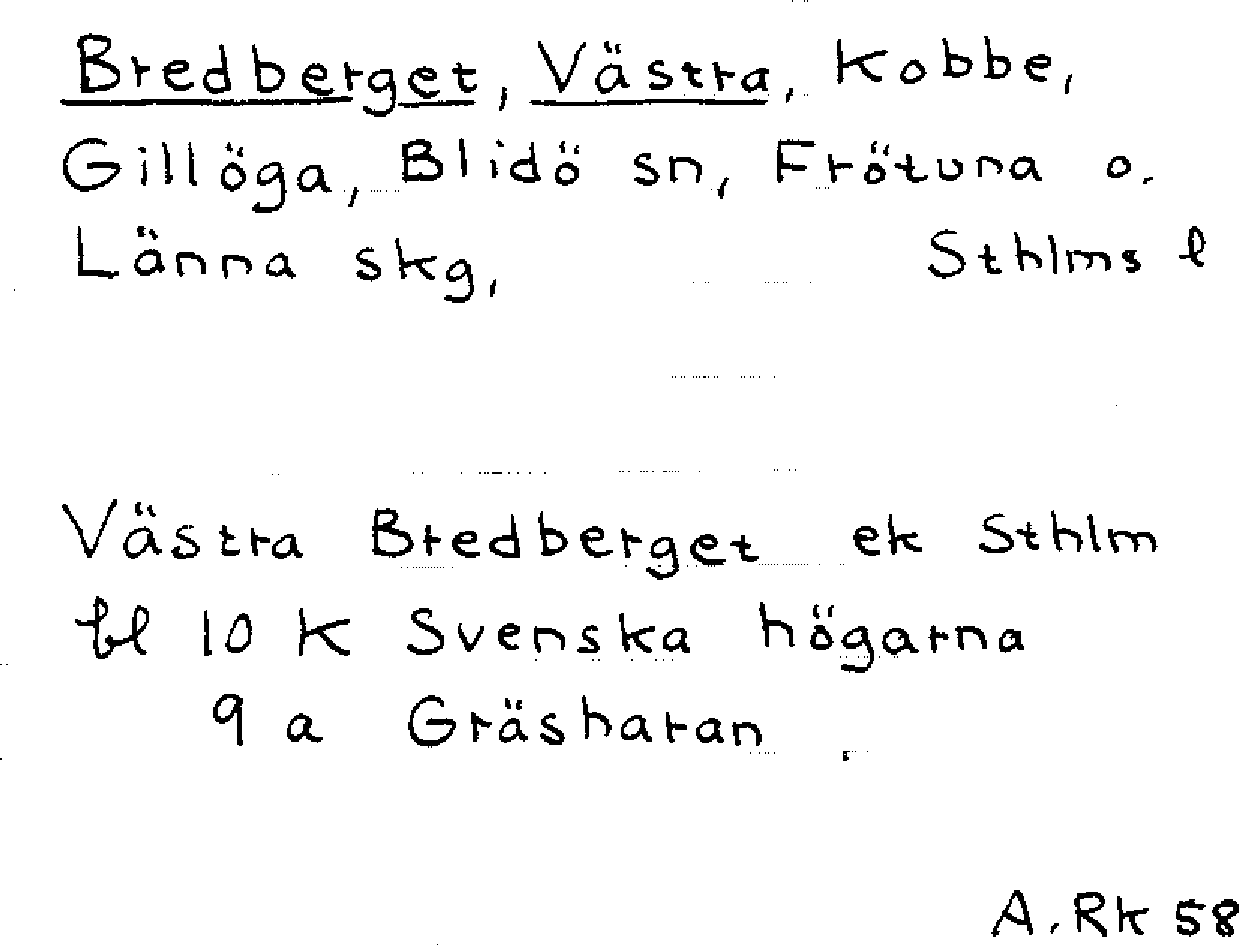 Bredberget, Västra, Kobbe,
Gillöga, Blidö sn, Frötuna o.
Länna skg, Sthlms l
Västra Bredberget ek Sthlm
bl 10 K Svenska högarna
9 a Gräsharan
A. Rk 58